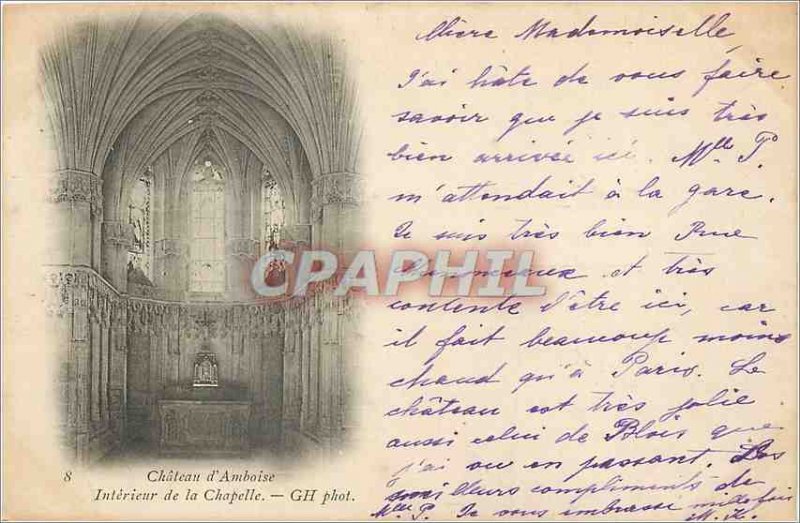 8 Château d'Amboise
Intérieur de la Chapelle. — GH phot.
Chère Mademoiselle,
J'ai hâte de vous faire
savoir que je suis très
bien arrivée ici. Mlle P.
m'attendait à la gare.
Je suis très bien Rue
et très
contente d'être ici, car
il fait beaucoup moins
chaud qu'à Paris. Le
château est très jolie
aussi celui de Blois que
j'ai vu en passant. Les
meilleurs compliments de
Mlle P. Je vous embrasse mille fois
M. K.
CPAPHIL